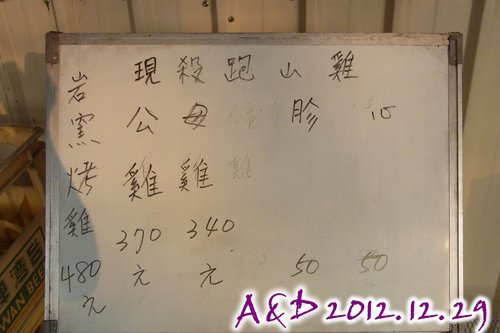 現殺跑山雞
岩窯烤雞 480元
公雞 370元
母雞 340元
胗 50
心 50
A&D 2012.12.29